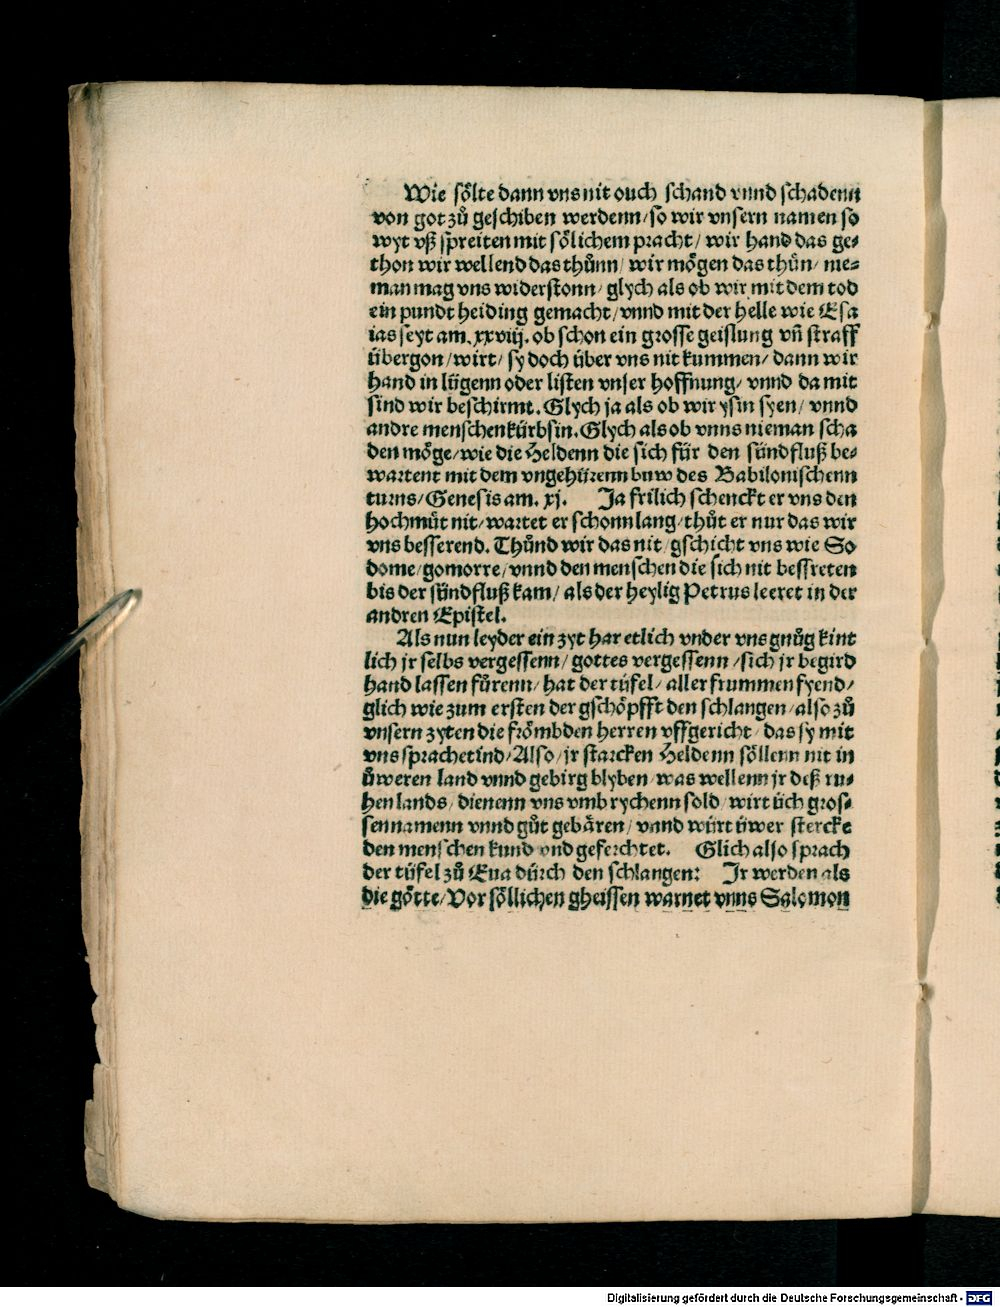 Wie sölte dann vns nit ouch schand vnnd schadenn
von got zů geschiben werdenn/ so wir vnsern namen so
wyt vß spreiten mit sölichem pracht/ wir hand das ge-
thon wir wellend das thůnn/ wir mögen das thůn/ nie-
man mag vns widerstonn/ glych als ob wir mit dem tod
ein pundt heiding gemacht/ vnnd mit der helle wie Esa
ias seyt am. xxviij. ob schon ein grosse geislung vñ straff
übergon/ wirt/ sy doch über vns nit kummen/ dann wir
hand in lügenn oder listen vnser hoffnung/ vnnd da mit
sind wir beschirmt. Glych ja als ob wir ysin syen/ vnnd
andre menschen kürbsin. Glych als ob vnns nieman scha
den möge/ wie die Heldenn die sich für den sündfluß be-
wartent mit dem vngehürenn buw des Babilonischenn
turns/ Genesis am. xj. Ja frilich schenckt er vns den
hochmüt nit/ wartet er schonn lang/ thůt er nur das wir
vns besserend. Thůnd wir das nit/ gschicht vns wie So
dome/ gomorre/ vnnd den menschen die sich nit bessreten
bis der sündfluß kam/ als der heylig Petrus leeret in der
andren Epistel.
Als nun leyder ein zyt har etlich vnder vns gnůg kint
lich jr selbs vergessenn/ gottes vergessenn/ sich jr begird
hand lassen fůrenn/ hat der tüfel/ aller frummen fyend/
glich wie zum ersten der gschöpfft den schlangen/ also zů
vnsern zyten die frömbden herren vffgericht/ das sy mit
vns sprachetind/ Also/ jr starcken Heldenn söllenn nit in
ůweren land vnnd gebirg blyben/ was wellenn jr deß ru-
hen lands/ dienenn vns vmb rychenn sold/ wirt üch gros-
sen namenn vnnd gůt gebären/ vnnd würt üwer stercke
den menschen kund vnd geferchtet. Glich also sprach
der tüfel zů Eua dürch den schlangen: Ir werden als
die götte/ Vor söllichen gheissen warnet vnns Salomon
Digitalisierung gefördert durch die Deutsche Forschungsgemeinschaft - DFG